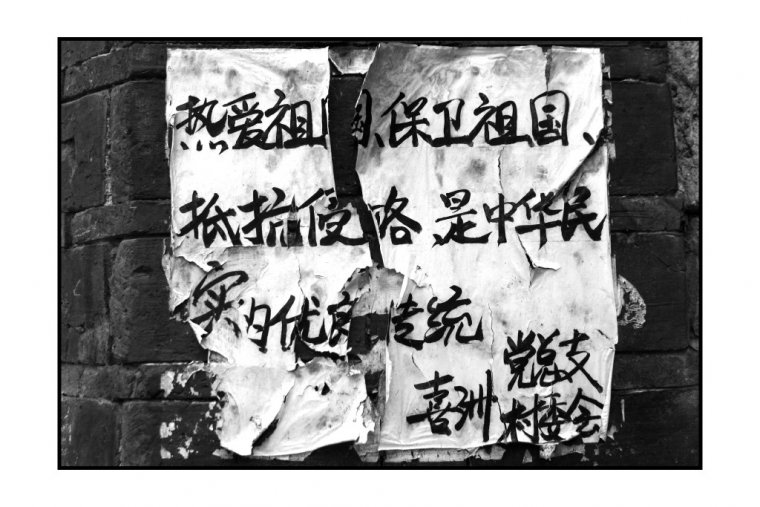 热爱祖国、保卫祖国、
抵抗侵略 是中华民
的优良传统
党总支
喜洲
村委会